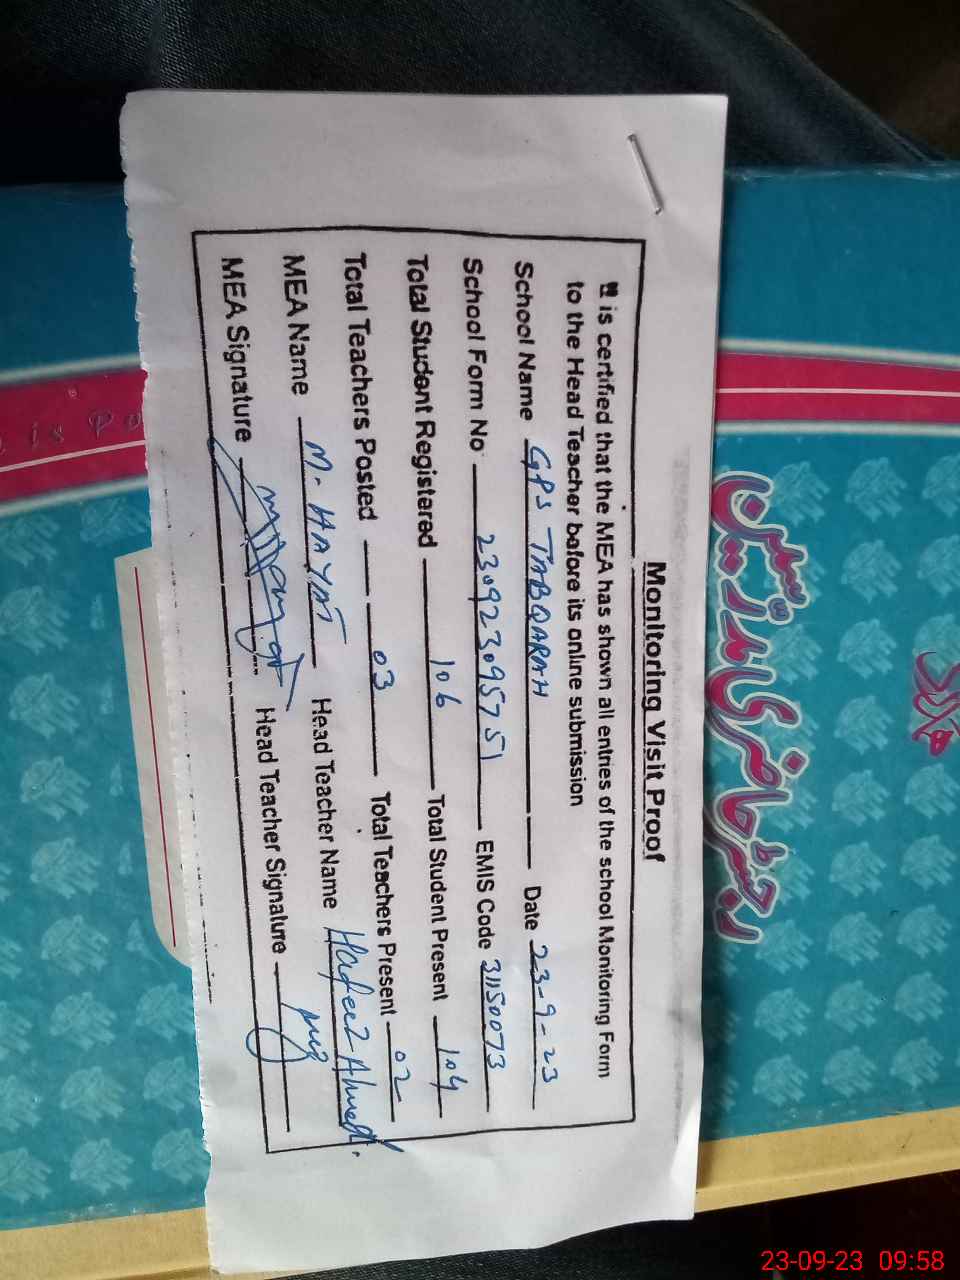 Monitoring Visit Proof
It is certified that the MEA has shown all entries of the school Monitoring Form
to the Head Teacher before its online submission
School Name GPS TABQARAH Date 23-9-23
School Form No 230923095751 EMIS Code 31150073
Total Student Registered 106 Total Student Present 104
Total Teachers Posted 03 Total Teachers Present 02
MEA Name M. HAYAT Head Teacher Name Hafeez Ahmed.
MEA Signature Head Teacher Signature
رجسٹر حاضری مدرسین
is Po
23-09-23 09:58